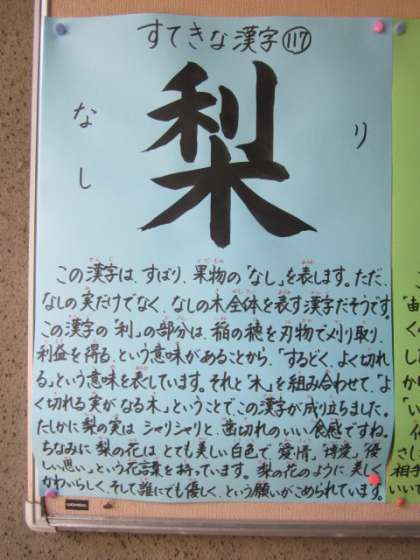 すてきな漢字 117
なし
梨
り
この漢字は、ずばり、果物の「なし」を表します。ただ、
なしの実だけでなく、なしの木全体を表す漢字だそうです。
この漢字の「利」の部分は、稲の穂を刃物で刈り取り、
利益を得る、という意味があることから、「するどく、よく切れ
る」という意味を表しています。それと「木」を組み合わせて、「よ
く切れる実がなる木」ということでこの漢字が成り立ちました。
たしかに梨の実は、シャリシャリと、歯切れのいい食感ですね。
ちなみに梨の花は、とても美しい白色で、愛情、博愛、優
しい思い」という花言葉を持っています。梨の花のように、美しく
かわいらしく、そして誰にでも優しく、という願いがこめられています。